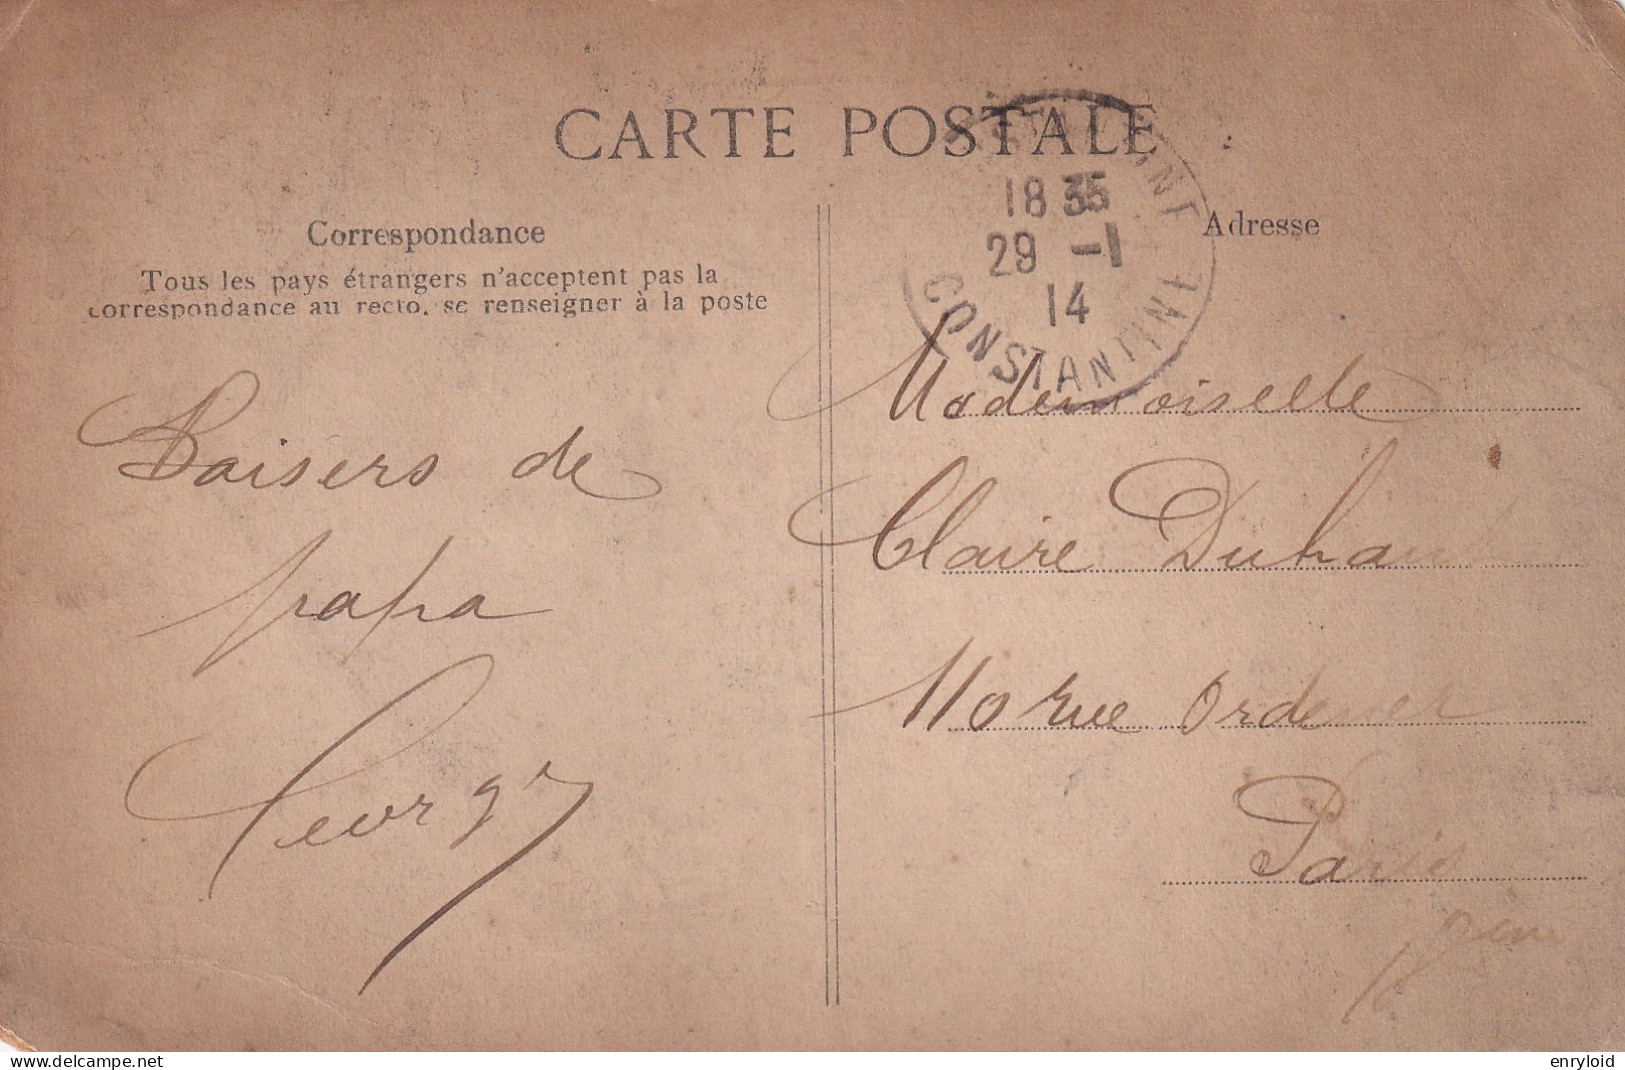 CARTE POSTALE
Correspondance
Tous les pays étrangers n'acceptent pas la
correspondance au recto, se renseigner à la poste
Baisers de
papa
Georges
18 35
29 -1
14
CONSTANTINE
Adresse
Mademoiselle
Claire
110 rue Ordener
Paris
18
delcampe.net
enryloid